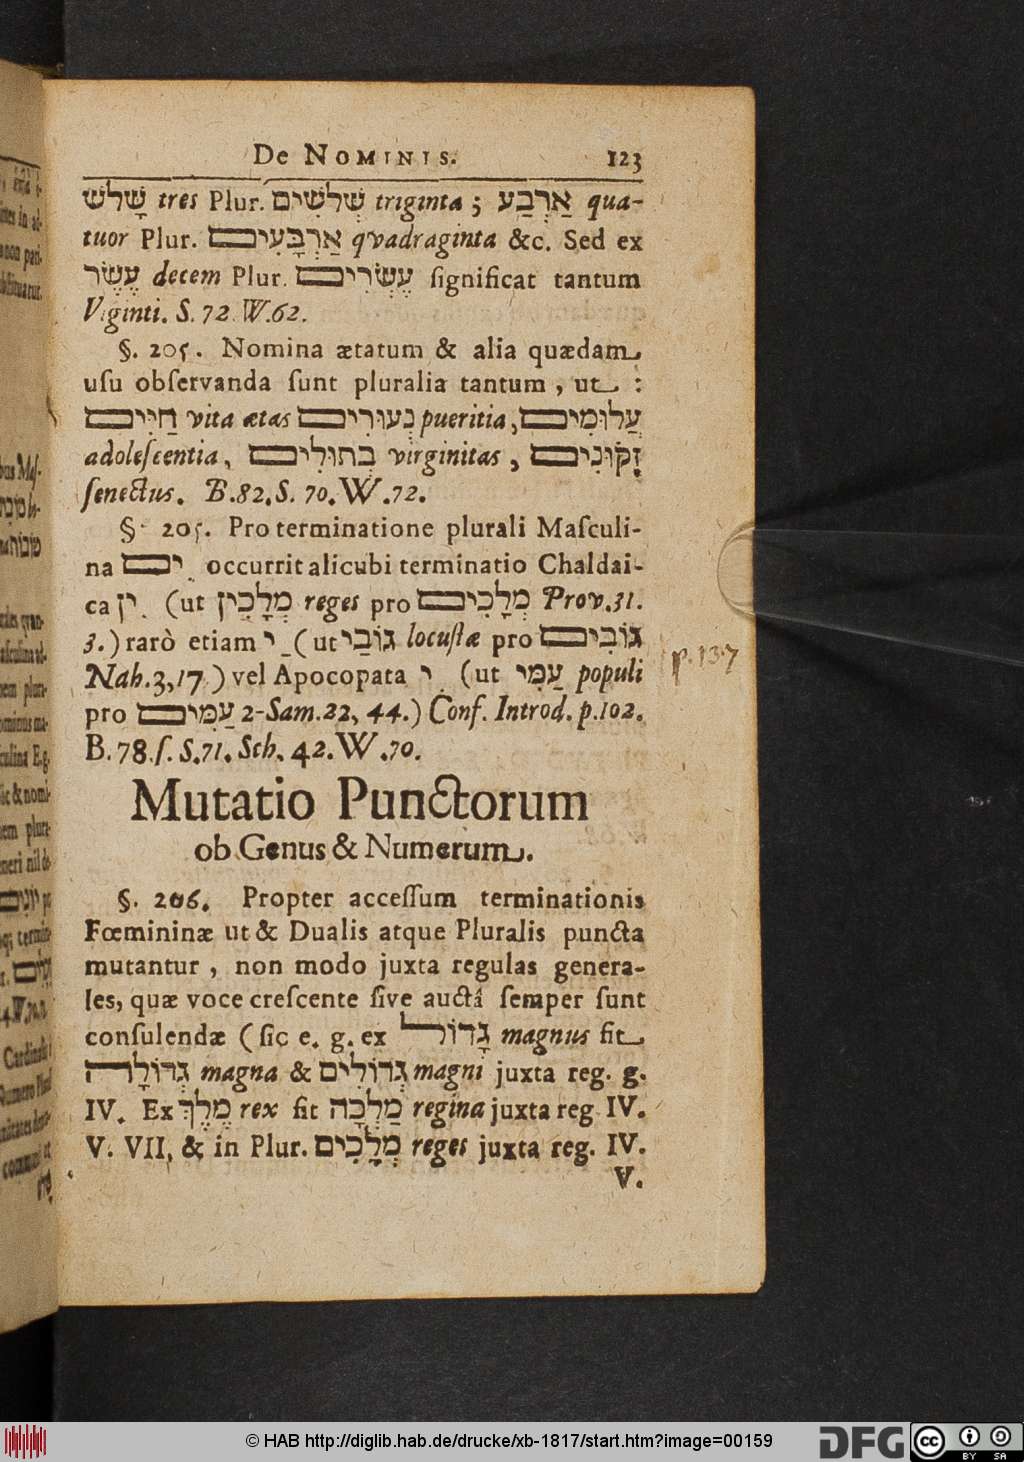 De NOMINIS. 123
שָׁלשׁ tres Plur. שְׁלשִׁים triginta ; אַרְבַּע qua-
tuor Plur. אַרְבָּעִים qvadraginta &c. Sed ex
עֶשֶׂר decem Plur. עֶשְׂרִים ſignificat tantum
Viginti. S. 72. W.62.
§. 205. Nomina ætatum & alia quædam
uſu obſervanda ſunt pluralia tantum, ut :
חַיִּים vita ætas נְעוּרִים pueritia, עֲלוּמִים
adoleſcentia, בְּתוּלִים virginitas, זְקוּנִים
ſenectus. B.82. S. 70. W.72.
§. 205. Pro terminatione plurali Maſculi-
na ִים occurrit alicubi terminatio Chaldai-
ca ִין (ut מְלָכִין reges pro מְלָכִים Prov.31.
3.) rarò etiam ַי (ut גּוֹבַי locuſtæ pro גּוֹבִים
Nah.3,17.) vel Apocopata ִי (ut עַמִּי populi
pro עַמִּים 2-Sam.22, 44.) Conf. Introd. p.102.
B. 78.ſ. S.71. Sch. 42. W.70.
p. 137
Mutatio Punctorum
ob Genus & Numerum.
§. 206. Propter acceſſum terminationis
Fœmininæ ut & Dualis atque Pluralis puncta
mutantur, non modo juxta regulas genera-
les, quæ voce creſcente ſive auctâ ſemper ſunt
conſulendæ (ſic e. g. ex גָּדוֹל magnus fit
גְּדוֹלָה magna & גְּדוֹלִים magni juxta reg. g.
IV. Ex מֶלֶךְ rex fit מַלְכָּה regina juxta reg IV.
V. VII, & in Plur. מְלָכִים reges juxta reg. IV.
V.
© HAB http://diglib.hab.de/drucke/xb-1817/start.htm?image=00159
DFG
cc BY SA